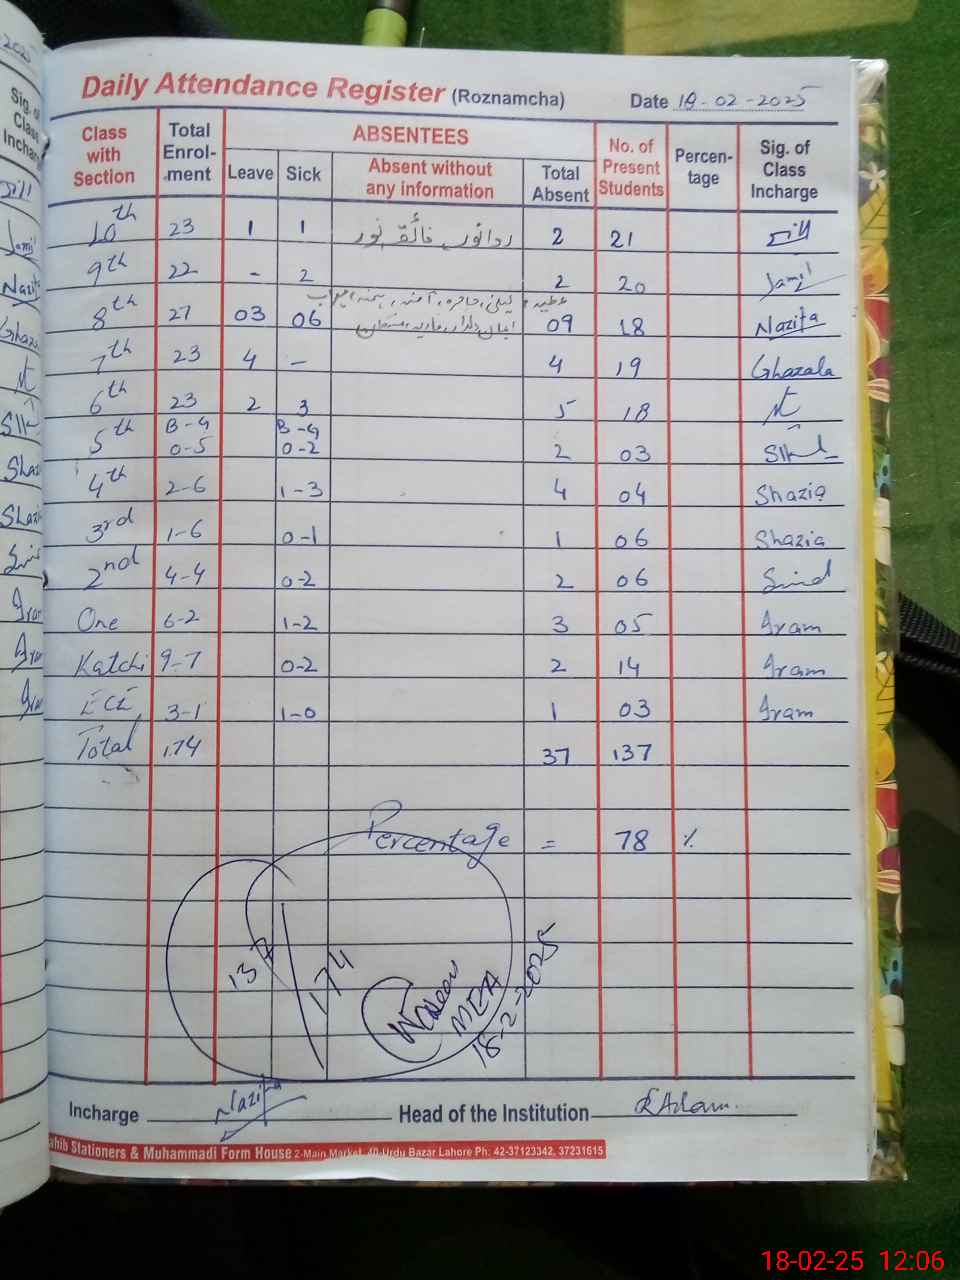 Daily Attendance Register (Roznamcha) Date 18-02-2025
Class with Section Total Enrol-ment ABSENTEES No. of Present Students Percen-tage Sig. of Class Incharge
Leave Sick Absent without any information Total Absent
10th 23 1 1 2 21
9th 22 - 2 2 20 Jamil
8th 27 03 06 09 18 Nazifa
7th 23 4 - 4 19 Ghazala
6th 23 2 3 5 18
B-4 B-4
5th 0-5 0-2 2 03
4th 2-6 1-3 4 04 Shazia
3rd 1-6 0-1 1 06 Shazia
2nd 4-4 0-2 2 06
One 6-2 1-2 3 05 Iram
Katchi 9-7 0-2 2 14 Iram
ECE 3-1 1-0 1 03 Iram
Total 174 37 137
Percentage = 78 %
137
174
Waseem
MEA
18-2-2025
Incharge Nazifa Head of the Institution
ahib Stationers & Muhammadi Form House 2-Main Market, 40-Urdu Bazar Lahore Ph: 42-37123342, 37231615
18-02-25 12:06